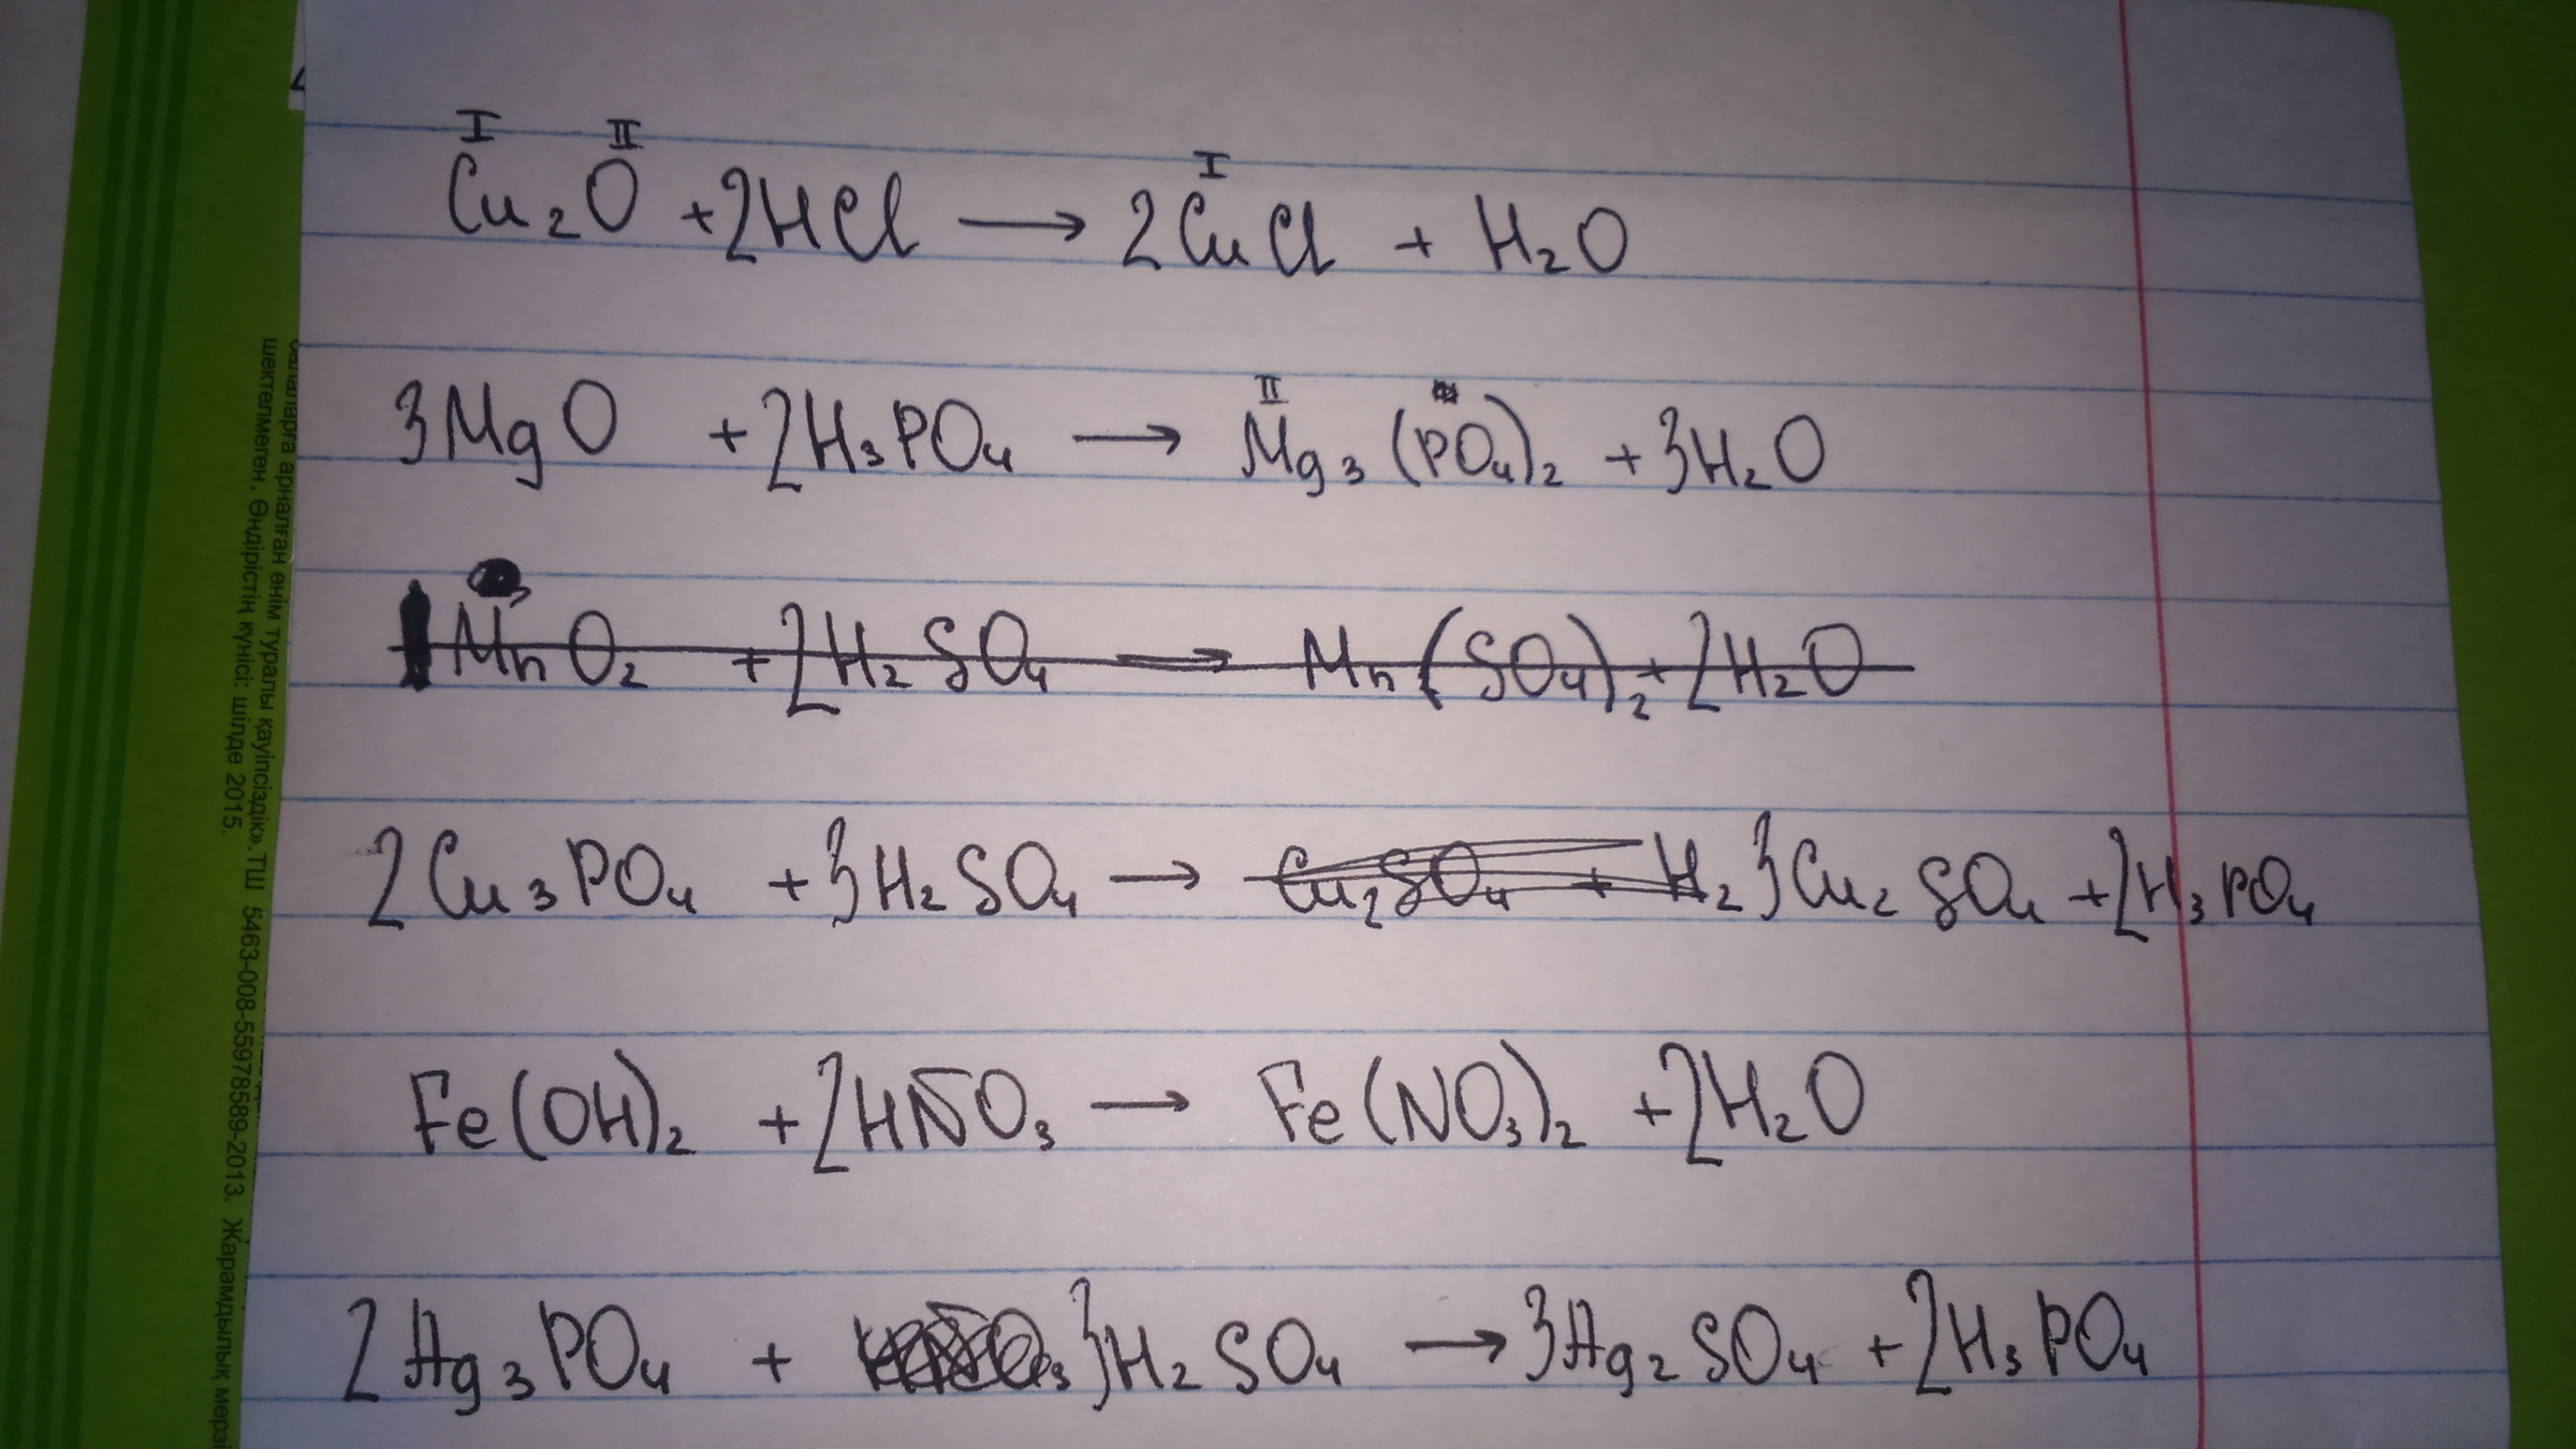 I II I
Cu₂O + 2HCl → 2CuCl + H₂O
II
3MgO + 2H₃PO₄ → Mg₃(PO₄)₂ + 3H₂O
MnO₂ + 2H₂SO₄ → Mn(SO₄)₂ + 2H₂O
2Cu₃PO₄ + 3H₂SO₄ → Cu₂SO₄ + H₂ 3Cu₂SO₄ + 2H₃PO₄
Fe(OH)₂ + 2HNO₃ → Fe(NO₃)₂ + 2H₂O
2Ag₃PO₄ + 3H₂SO₄ → 3Ag₂SO₄ + 2H₃PO₄
арналған өнім туралы қауіпсіздік». ТШ 5463-008-55978589-2013. Жарамдылық
шектелмеген. Өндірістің күнісі: шілде 2015.